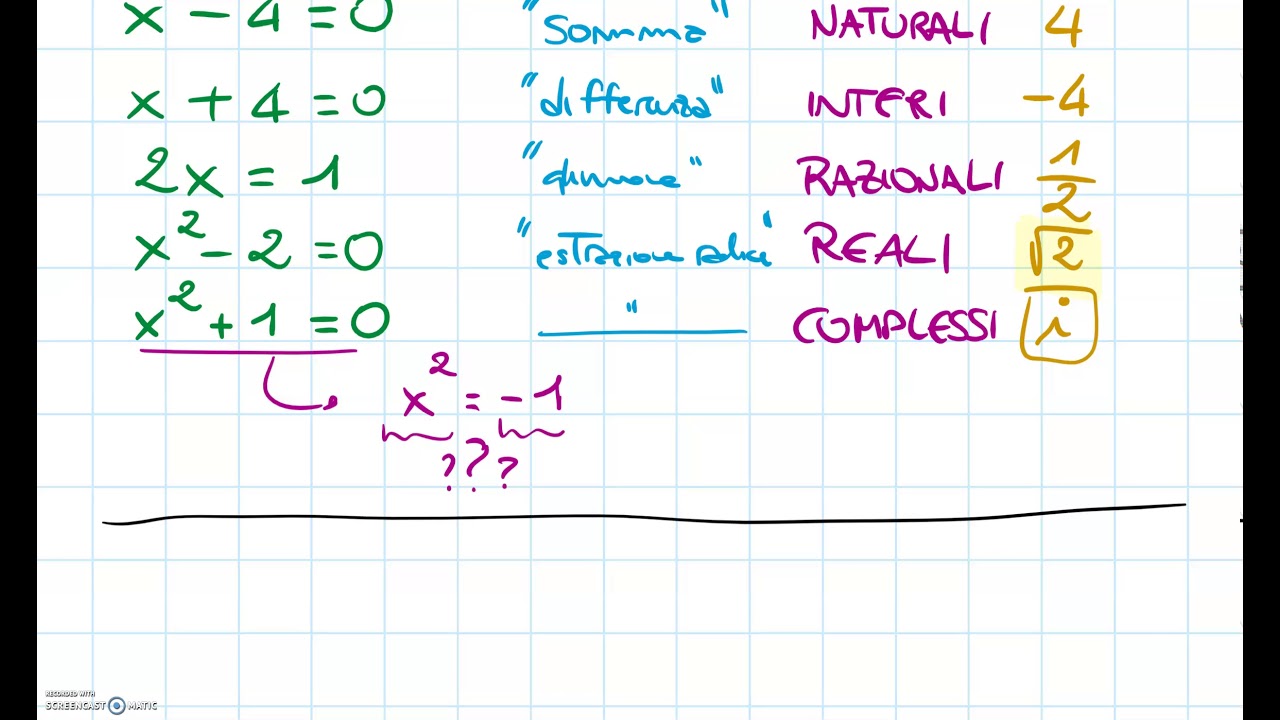 x - 4 = 0 "Somma" NATURALI 4
x + 4 = 0 "differenza" INTERI -4
2x = 1 "divisione" RAZIONALI 1/2
x² - 2 = 0 "estrazione radice" REALI √2
x² + 1 = 0 " COMPLESSI i
x² = -1
? ? ?
RECORDED WITH
SCREENCAST MATIC